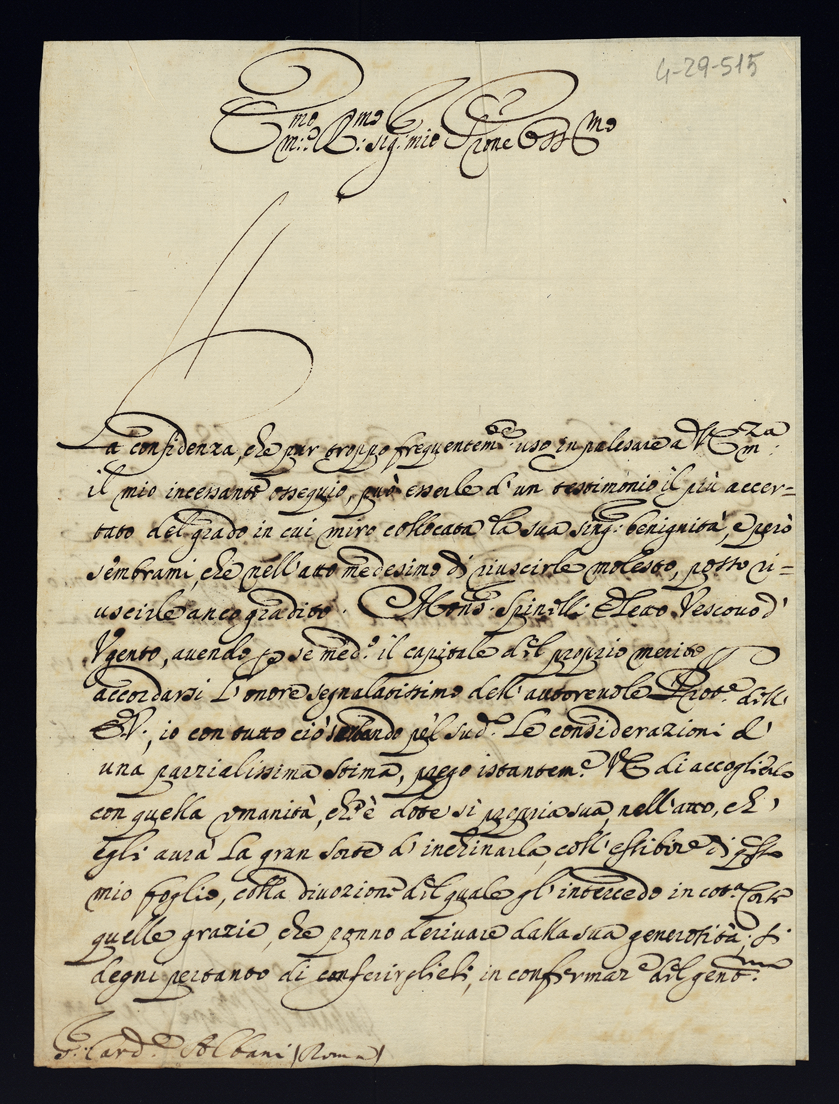 4-29-515
Em̃o mo R:mo sig.r mio P.rone Oss.mo
La confidenza, che pur troppo frequentem.e uso in palesare a V. Em.za
il mio incessante ossequio, può esserle d'un testimonio il più accer=
tato del grado in cui miro collocata la sua sing: benignità, e però
sembrami, che nell'atto medesimo di riuscirle molesto, posso ri=
uscirle anco gradito. Mons: Spinelli Eletto Vescovo d'
Vgento, avendo p se med.o il capitale del proprio merito
accordarsi l'onore segnalatissimo dell'autorevole Prot.e dell'
E.V., io con tutto ciò pel sud.o le considerazioni d'
una parzialissima stima, prego istantem.e V.E. di accoglierlo
con quella vmanità, ch'è dote sì propria sua, nell'atto, ch'
egli aurà la gran sorte d'inchinarla, coll'esibire di q.sto
mio foglio, colla divozione del quale gl'intercedo in cot.a Corte
quelle grazie, che ponno derivare dalla sua generosità; si
degni pertanto di conferirglieli, in confermar.e del gen.mo
S: Card.e Albani (Roma)